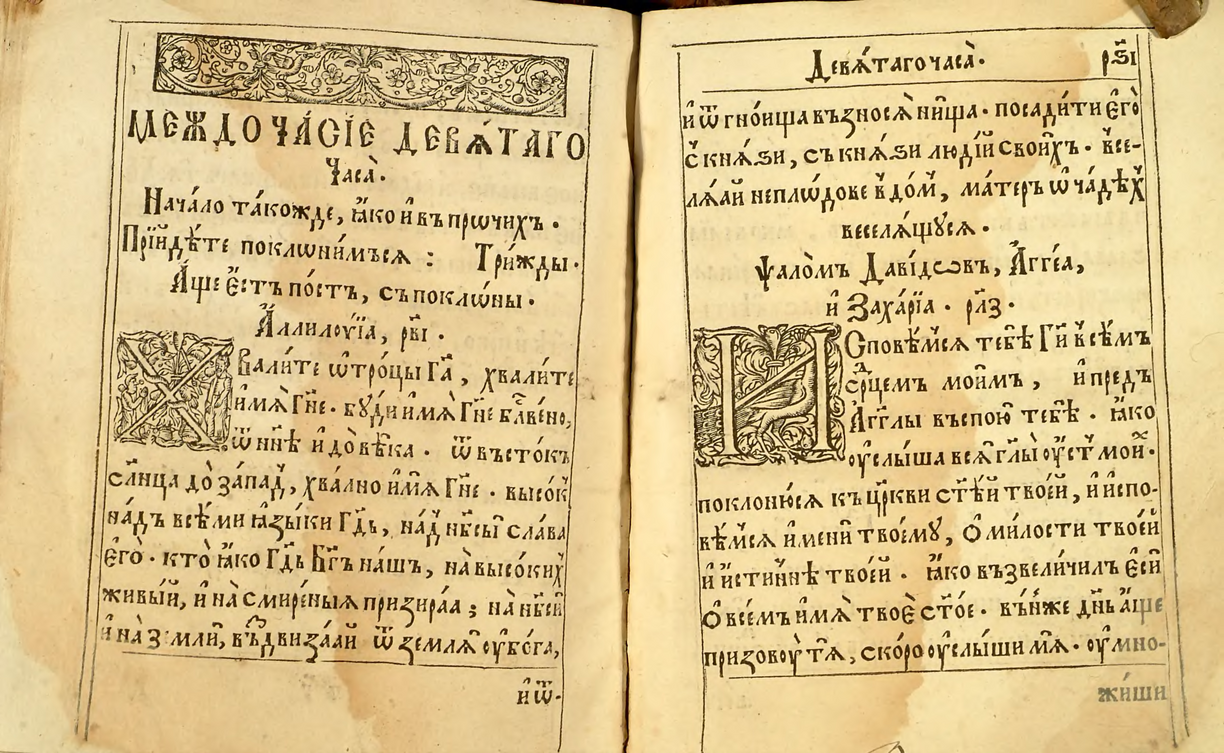 МЕЖДОЧА́СЇЕ ДЕВѦ́ТАГО
Часа̀.
Нача́ло та́кожде, ꙗ҆́ко и҆ въ прѡ́чихъ.
Прїйдѣ́те поклѡни́мъсѧ : Три́жды.
А҆́ще є҆́стъ по́стъ, съ поклѡ́ны.
А҆ллилꙋ́їа, рв҃і.
Хвали́те ѡ҆́троцы Гⷭ҇а, хвали́те
и҆́мѧ Гн҃е. бꙋ́ди и҆́мѧ Гн҃е бл҃ве́но,
ѿ нн҃ѣ и҆ до вѣ́ка. ѿ въсто́къ
сл҃нца до за́пад, хва́лно и҆́мѧ Гн҃е. высо́к
на́дъ всѣ́ми ꙗ҆зы́ки Гд҃ь, на́д нб҃сы̀ сла́ва
є҆го̀. кто̀ ꙗ҆́ко Гд҃ь Бг҃ъ на́шъ, на высо́ких
живы́й, и҆ на смире́ныѧ призира́ѧ; на нб҃сѝ
и҆ на з мли́, въздвиза́ай ѿ землѧ̀ ѹ҆бо́га,
и҆ ѿ.
Девѧ́таго часа̀. рѕ҃і
и҆ ѿ гно́ища възносѧ̀ ни́ща. посади́ти є҆го̀
с̾ кнѧ́ѕи, съ кнѧ́ѕи люді́й свои́хъ. все-
лѧ́ай непло́дове в̾ до́м, ма́теръ ѡ҆ ча́дѣх
веселѧ́щꙋсѧ.
Ѱало́мъ Дави́дѡвъ, А҆гге́а,
и҆ Заха́рїа. рл҃з.
И҆сповѣ́мсѧ тебѣ̀ Гⷭ҇и всѣ́мъ
ср҃дцемъ мои́мъ, и҆ предъ
А҆́гг҃лы въспою̀ тебѣ̀. ꙗ҆́ко
ѹ҆слы́ша всѧ̀ гл҃ы ѹ҆́ст мои́х.
поклоню́сѧ къ цр҃кви ст҃ѣ́й твое́й, и҆ и҆спо-
вѣ́мсѧ и҆́мени твоемꙋ̀, ѻ҆ ми́лости твое́й
и҆ и҆́стиннѣ твое́й. ꙗ҆́ко възвели́чилъ є҆сѝ
ѻ҆ все́мъ и҆́мѧ твоѐ ст҃о́е. в̾ньже дн҃ь а҆́ще
призовꙋ̀ тѧ̀, ско́ро ѹ҆слы́ши мѧ̀. ѹ҆мно-
жи́ши